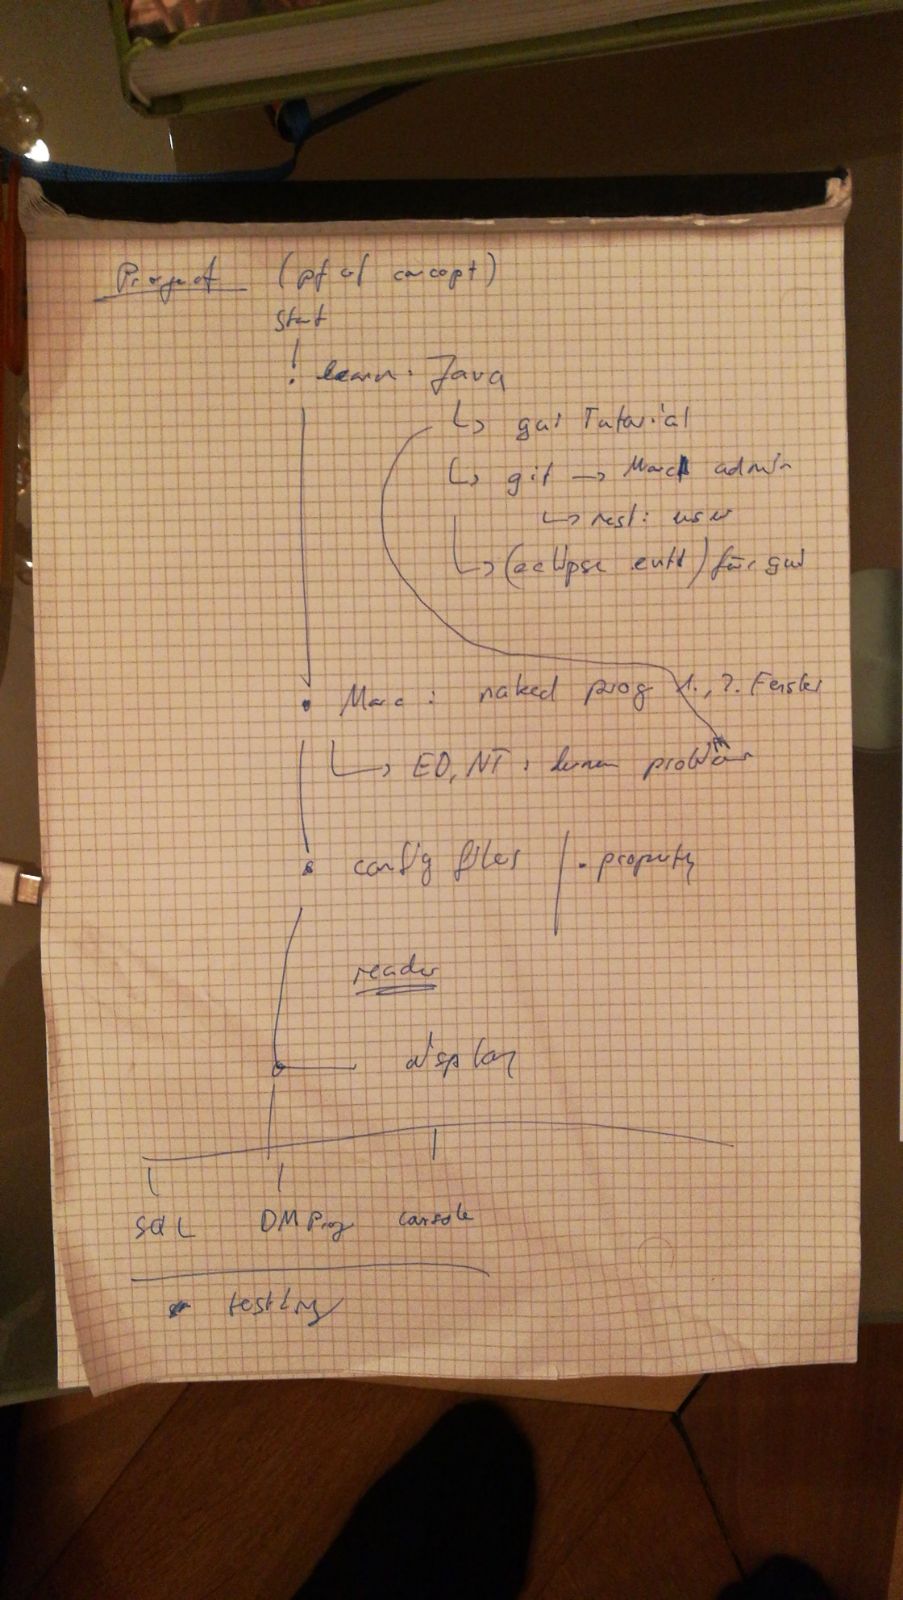 Project (pf of concept)
Start
learn: Java
↳ gui Tutorial
↳ git → Marc admin
↳ rest: user
↳ (eclipse evtl) für gui
Marc: naked prog 1., 2. Fenster
↳ EO, NT:
config files | .property
reader
display
SQL DM Prog console
testing